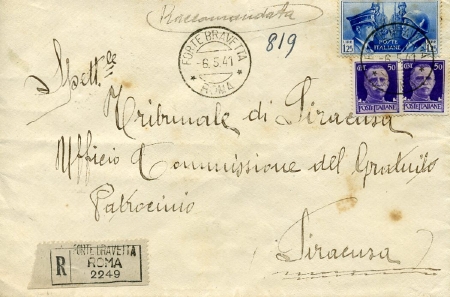 Raccomandata
819
FORTE BRAVETTA
-6.5.41
* ROMA *
1,25
POSTE
ITALIANE
1,25
CENT 50
50
POSTE ITALIANE
POSTE ITALIANE
Spett.le
Tribunale di Siracusa
Ufficio Commissione del Gratuito
Patrocinio
Siracusa
R
FORTE BRAVETTA
ROMA
2249